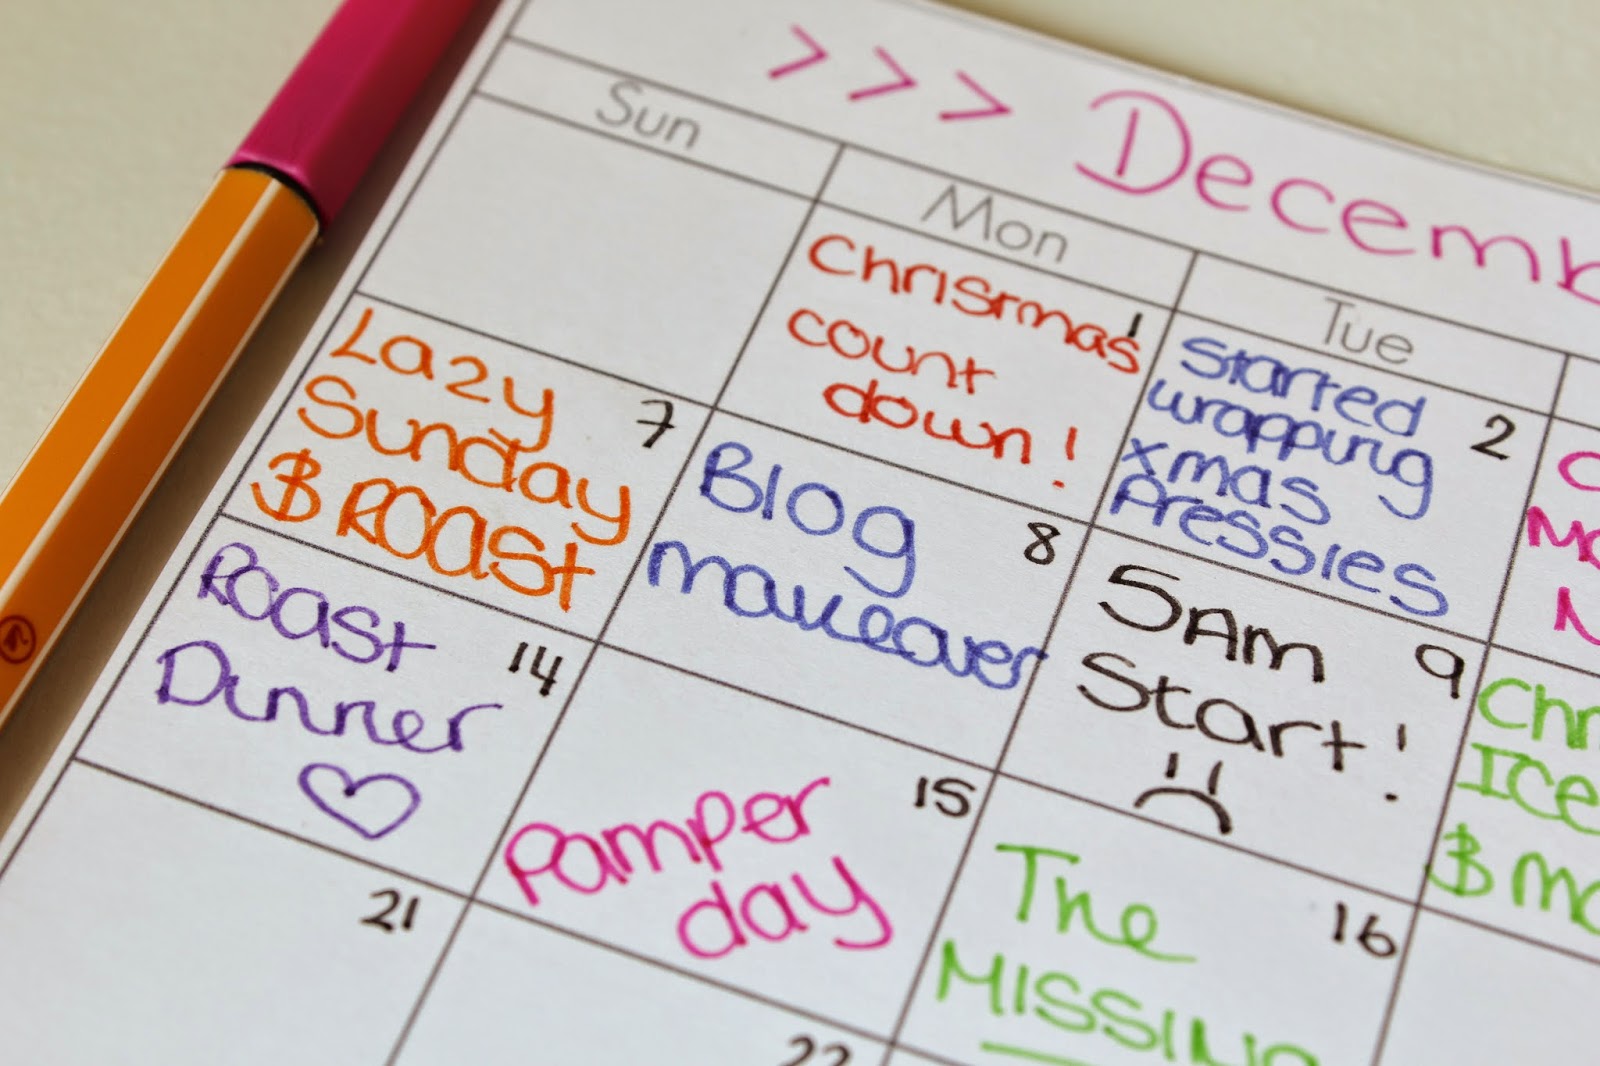 >>> Decemb
Sun Mon Tue
1
Christmas
count
down!
2
Started
wrapping
xmas
Pressies
7
Lazy
Sunday
& ROAST
8
Blog
makeover
9
5AM
Start!
Chr
ICE
& Mo
14
Roast
Dinner
15
Pamper
day
16
The
MISSING
21
22